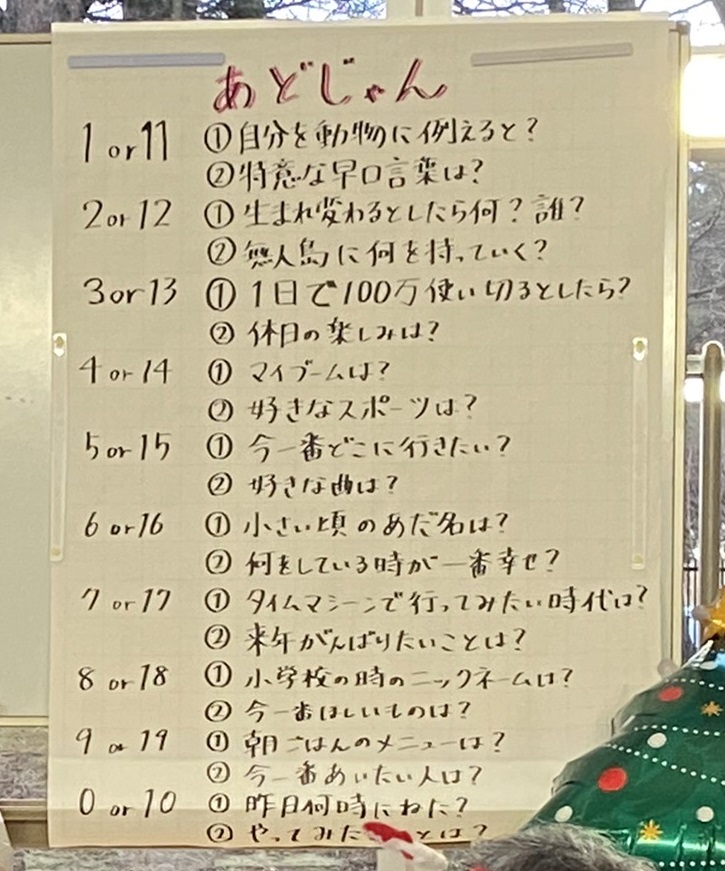 あどじゃん
1 or 11 ①自分を動物に例えると?
②特意な早口言葉は?
2 or 12 ①生まれ変わるとしたら何?誰?
②無人島に何を持っていく?
3 or 13 ①1日で100万使い切るとしたら?
②休日の楽しみは?
4 or 14 ①マイブームは?
②好きなスポーツは?
5 or 15 ①今一番どこに行きたい?
②好きな曲は?
6 or 16 ①小さい頃のあだ名は?
②何をしている時が一番幸せ?
7 or 17 ①タイムマシーンで行ってみたい時代は?
②来年がんばりたいことは?
8 or 18 ①小学校の時のニックネームは?
②今一番ほしいものは?
9 or 19 ①朝ごはんのメニューは?
②今一番あいたい人は?
0 or 10 ①昨日何時にねた?
②やってみた とは?